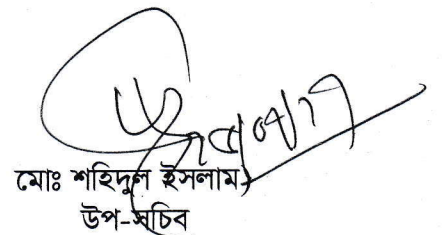 মোঃ শহিদুল ইসলাম
উপ-সচিব